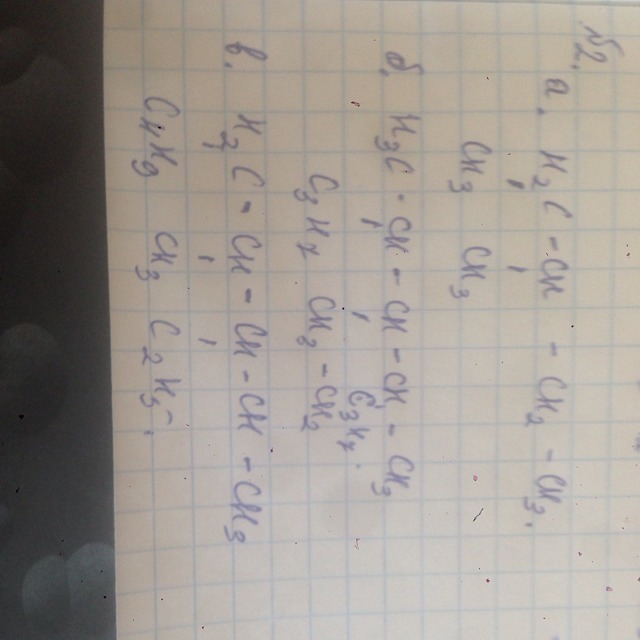 №2.
а. H2C - CH - CH2 - CH3.
CH3 CH3
б. H3C - CH - CH - CH - CH3
C3H7.
C3H7 CH3 - CH2
в. H3C - CH - CH - CH - CH3
C4H9 CH3 C2H5.